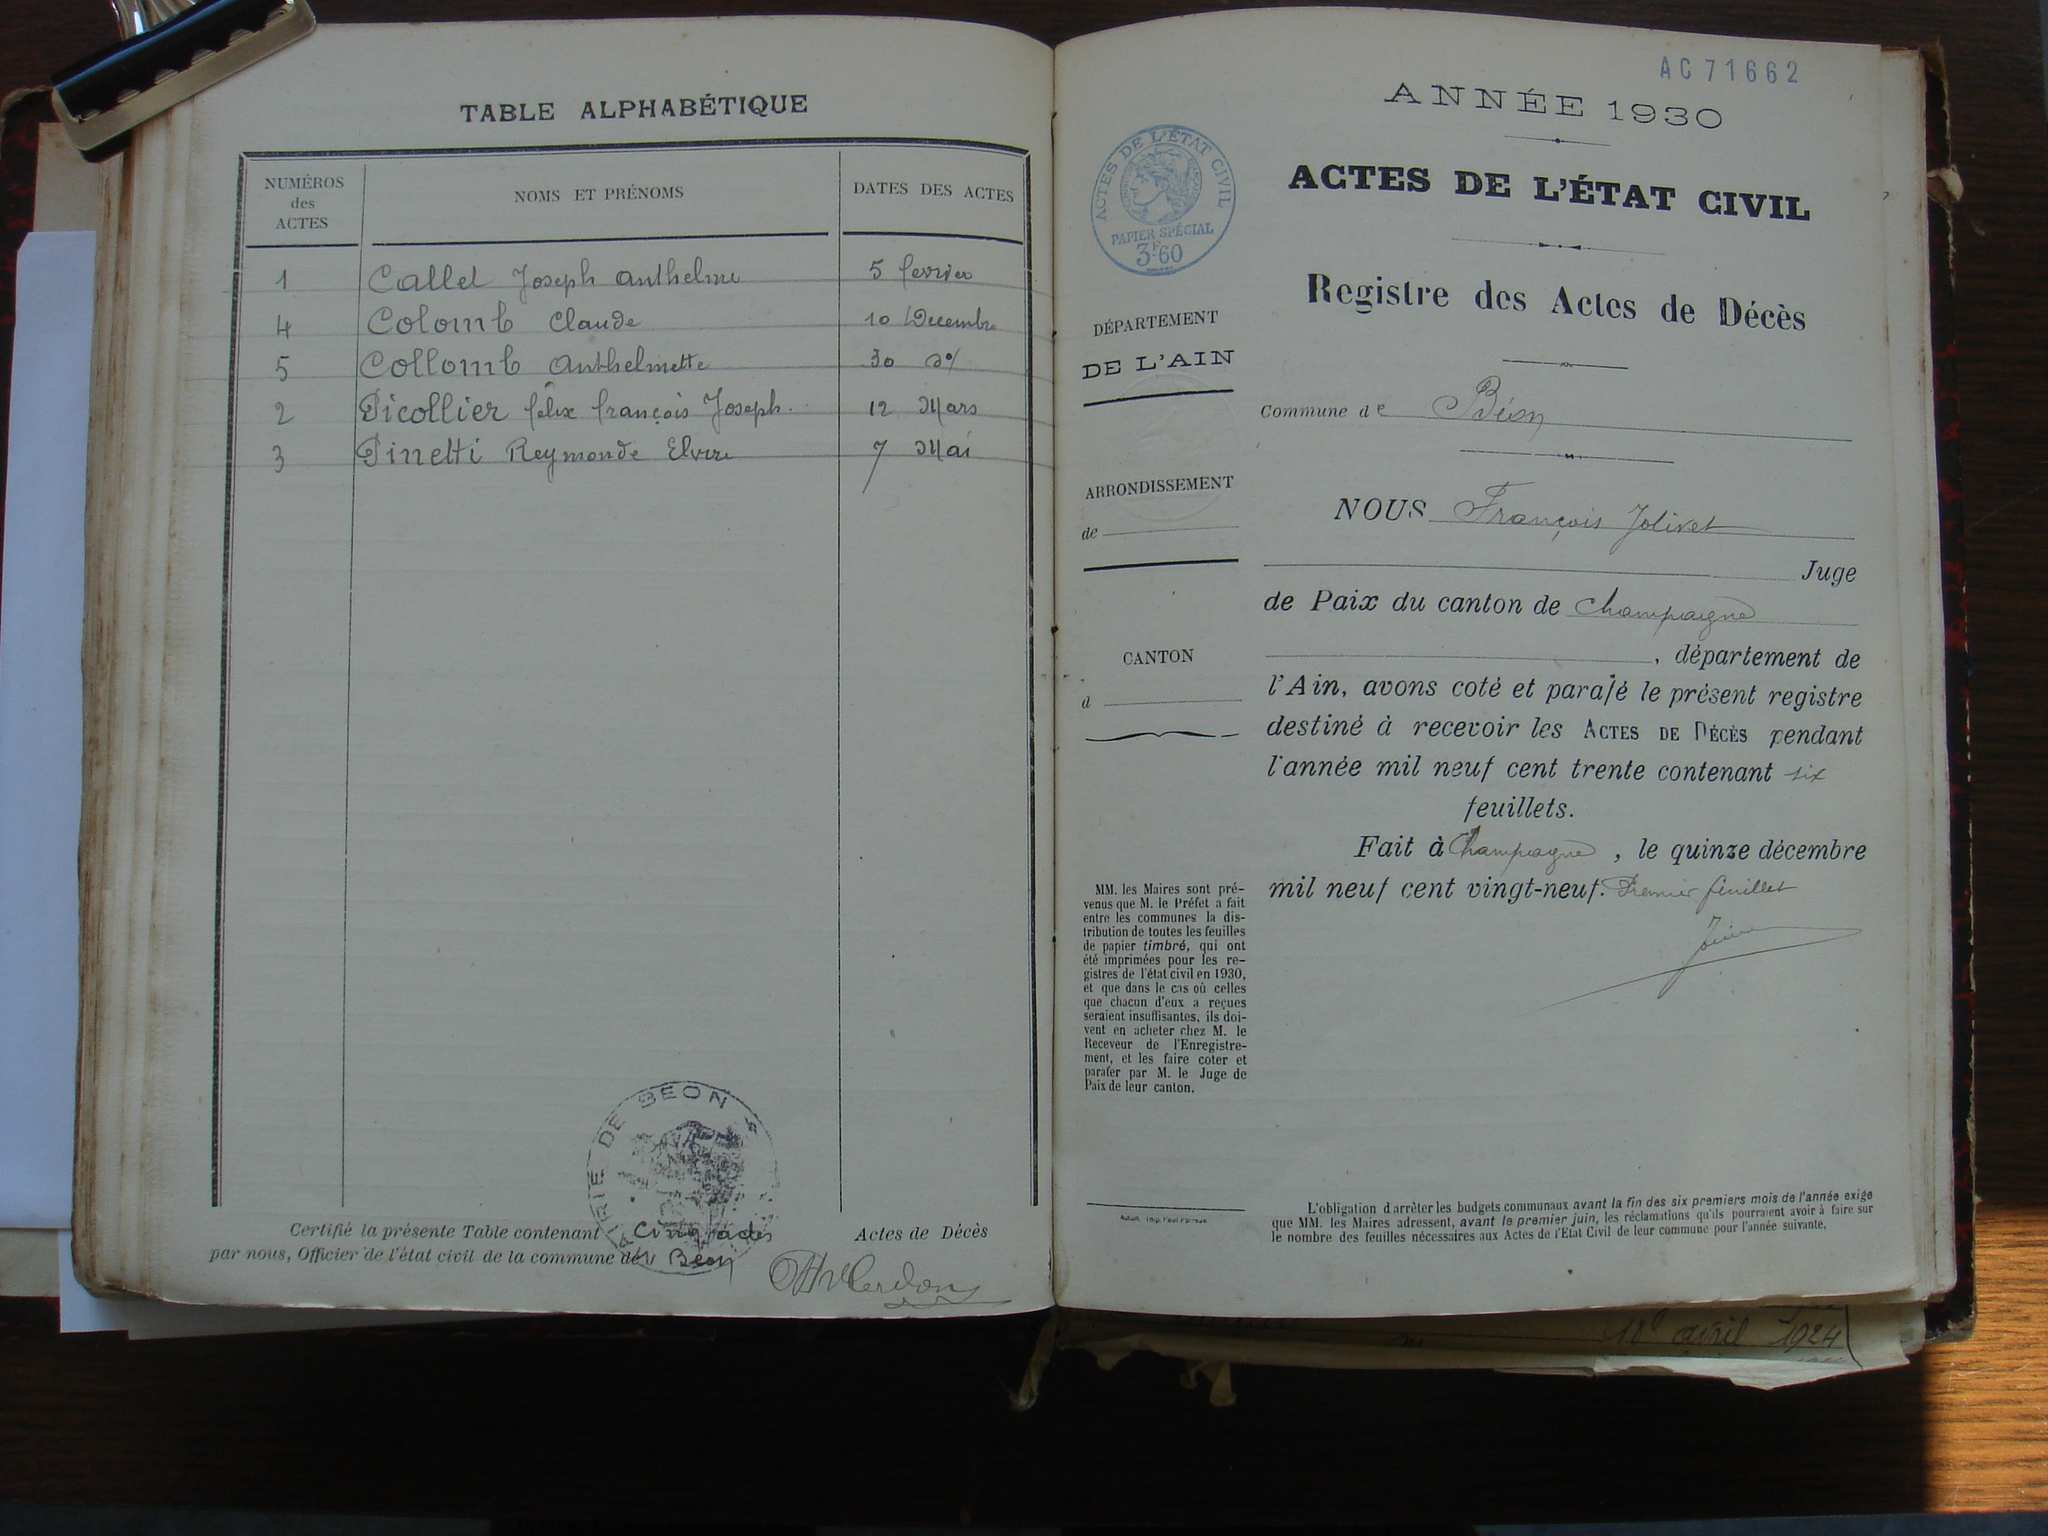 TABLE ALPHABÉTIQUE
NUMÉROS des ACTES
NOMS ET PRÉNOMS
DATES DES ACTES
1 Callet Joseph Anthelme 5 fevrier
4 Colomb Claude 10 Decembre
5 Collomb Anthelmette 30 do
2 Picollier félix françois Joseph. 12 Mars
3 Pinetti Reymonde Elvire 7 Mai
MAIRIE DE BEON
Certifié la présente Table contenant Cinq actes Actes de Décès
par nous, Officier de l'état civil de la commune de Beon
AC71662
ANNÉE 1930
ACTES DE L'ÉTAT CIVIL
PAPIER SPÉCIAL
3F60
ACTES DE L'ÉTAT CIVIL
Registre des Actes de Décès
DÉPARTEMENT
DE L'AIN
Commune de Béon
ARRONDISSEMENT
de
NOUS François Jolivet
Juge
de Paix du canton de Champagne
CANTON
d
, département de
l'Ain, avons coté et parafé le présent registre
destiné à recevoir les ACTES DE DÉCÈS pendant
l'année mil neuf cent trente contenant six
feuillets.
Fait à Champagne, le quinze décembre
mil neuf cent vingt-neuf. Premier feuillet
MM. les Maires sont pré-
venus que M. le Préfet a fait
entre les communes la dis-
tribution de toutes les feuilles
de papier timbré, qui ont
été imprimées pour les re-
gistres de l'état civil en 1930,
et que dans le cas où celles
que chacun d'eux a reçues
seraient insuffisantes, ils doi-
vent en acheter chez M. le
Receveur de l'Enregistre-
ment, et les faire coter et
parafer par M. le Juge de
Paix de leur canton.
L'obligation d'arrêter les budgets communaux avant la fin des six premiers mois de l'année exige
que MM. les Maires adressent, avant le premier juin, les réclamations qu'ils pourraient avoir à faire sur
le nombre des feuilles nécessaires aux Actes de l'Etat Civil de leur commune pour l'année suivante.
avril 1924